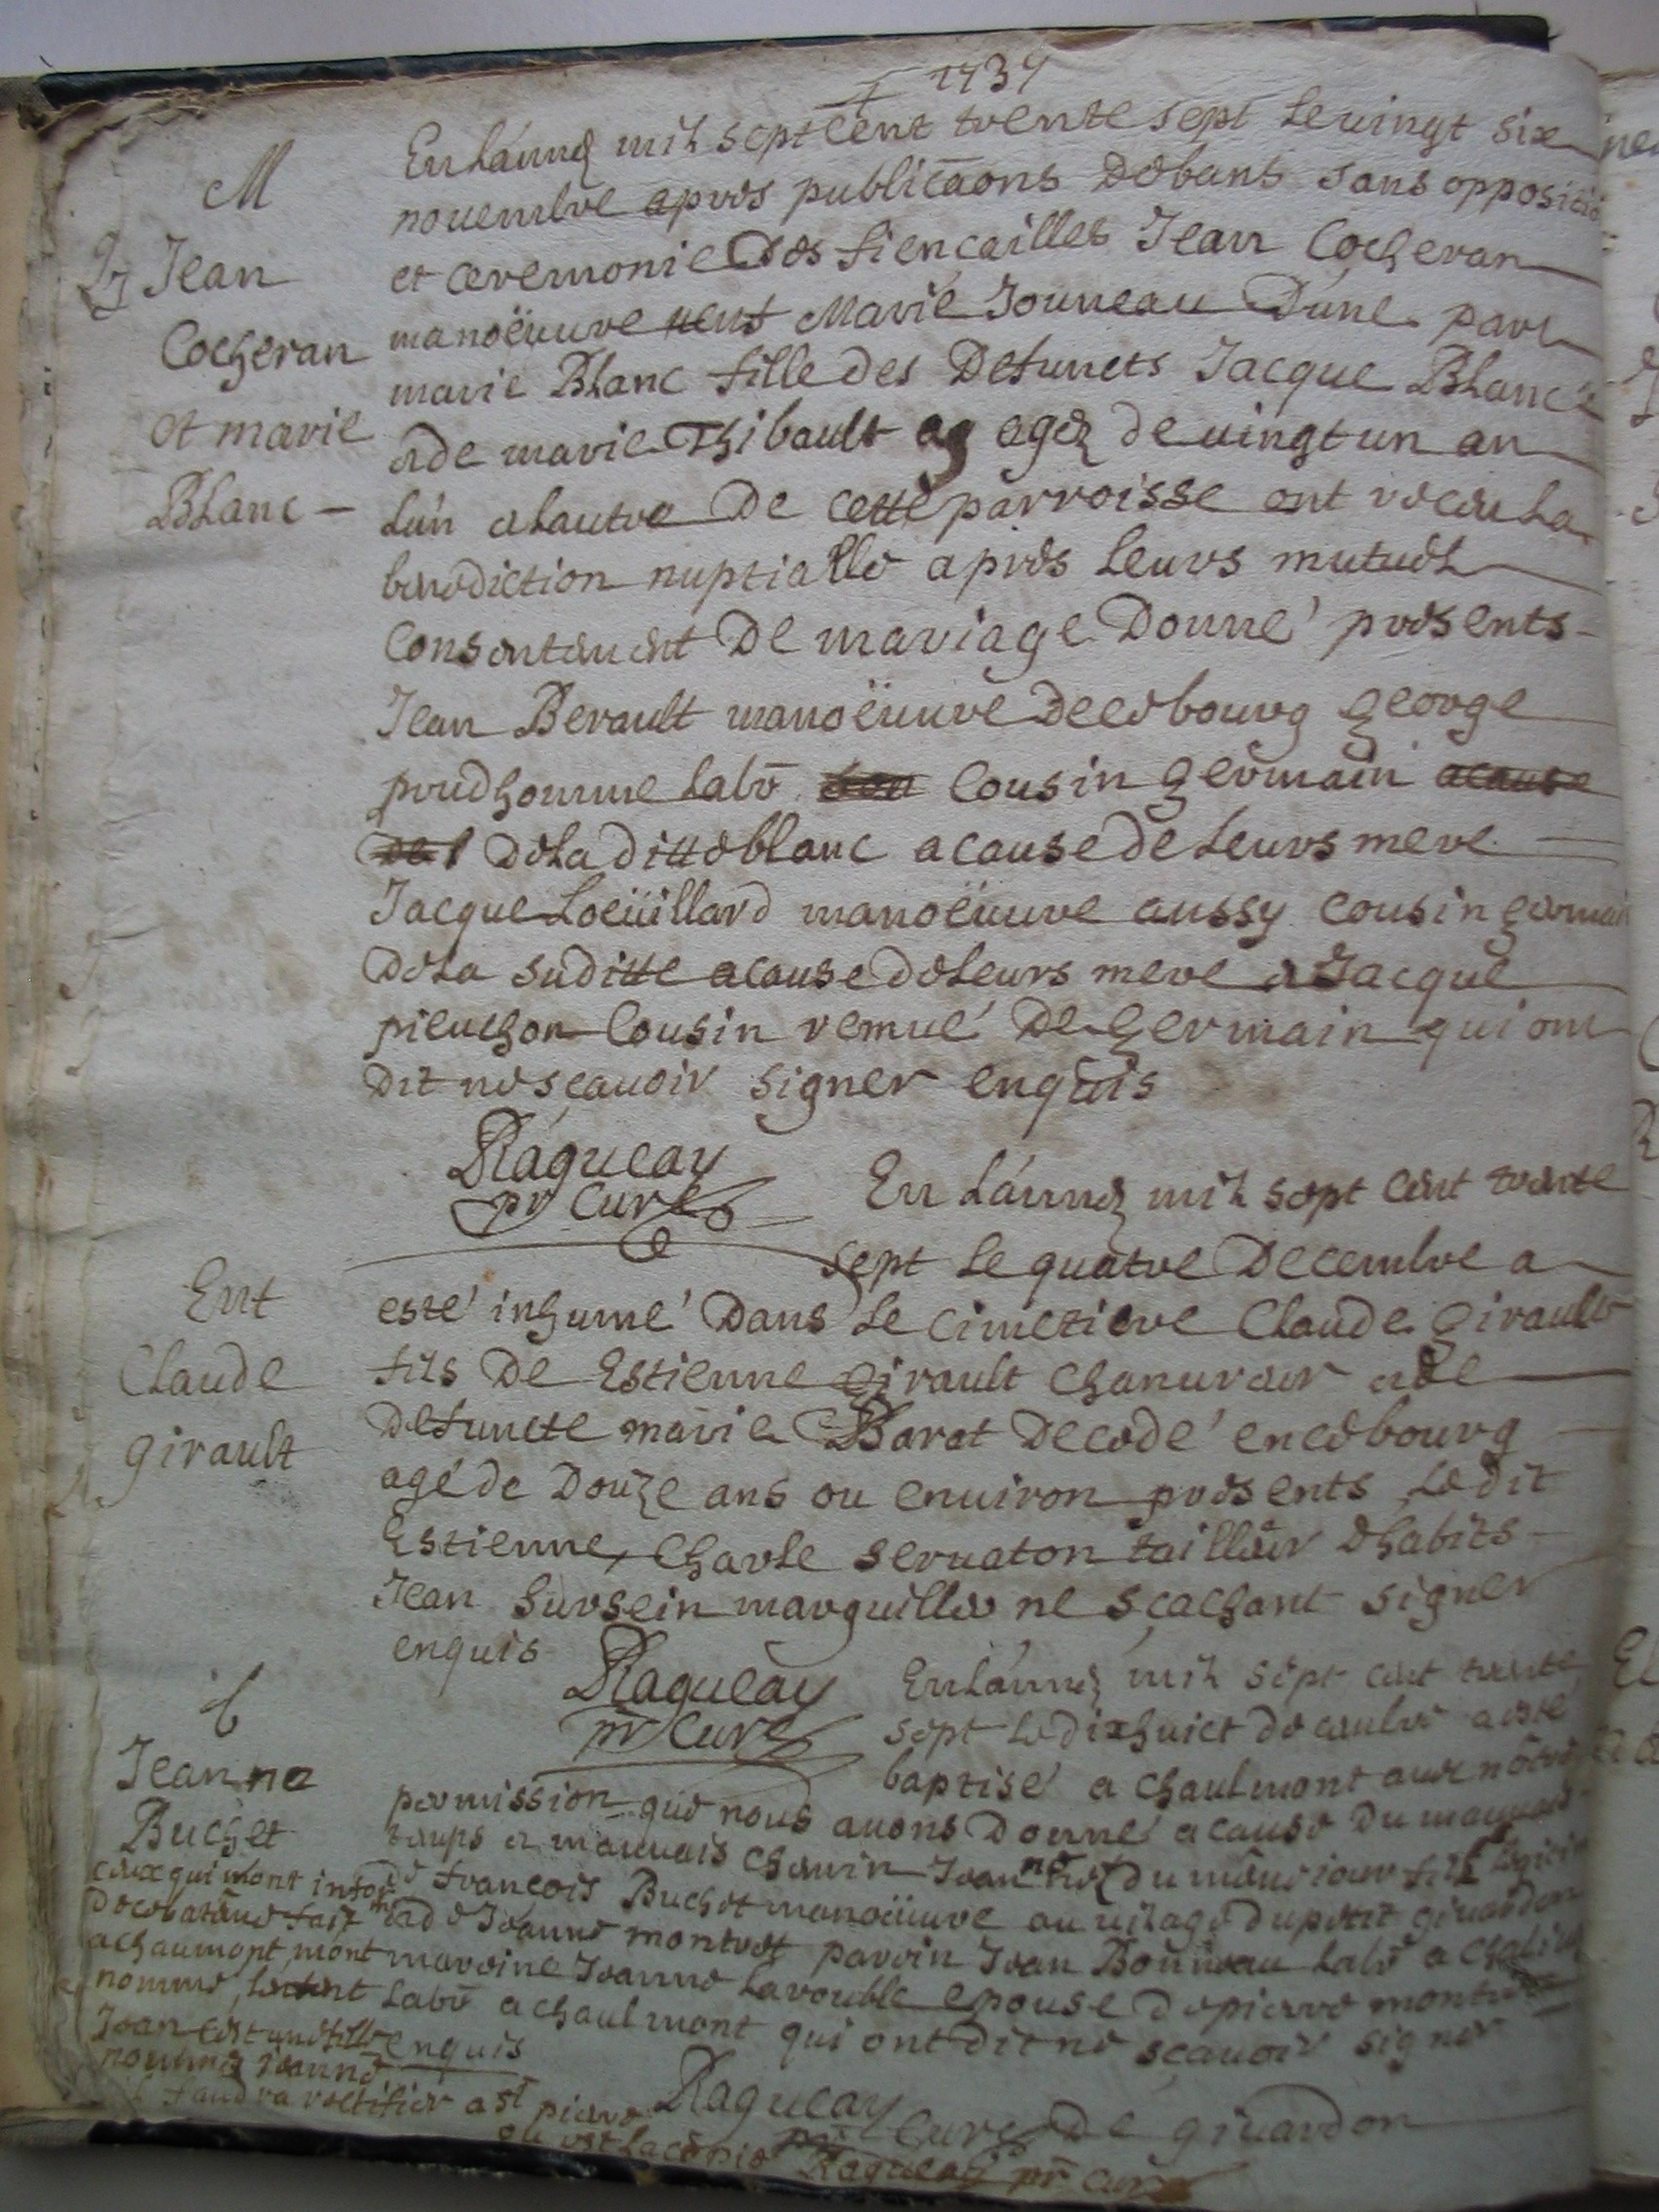 1737
M
Jean
Cocheran
et marie
Blanc -
En Lánneé mil sept cent trente sept Le uingt six
nouembre apres publicaons de bans sans oppositio
et ceremonie des fiencailles Jean Cocheran
manoëuure ueuf Marie Jouneau d'úne part
marie Blanc fille des defuncts Jacque Blanc
et de marie Thibault ageé de uingt un an
Lún et Lautre de cette parroisse ont receu La
benediction nuptialle apres Leurs mutuel
Consentement de mariage donné présents -
Jean Berault manoëuure de ce bourg george
prudhomme Labr Cousin germain
de La ditte blanc a cause de Leurs mere
Jacque Loeüillard manoëuure aussy cousin germain
de La suditte a cause de Leurs mere et Jacque
pieuchon Cousin remué de germain qui ont
dit ne scauoir signer enquis
Ragueau
pr Curé
Ent
Claude
girault
En Lánneé mil sept cent trente
sept Le quatre decembre a
esté inhumé dans Le Cimetiere Claude girault
fils de Estienne girault chanureur et de
defuncte marie Barat decedé en ce bourg
agé de douze ans ou enuiron presents Ledit
Estienne, Charle seruaton tailleur d'habits -
Jean Sursein marguillier ne sçachant signer
enquis
Ragueau
pr Curé
b
Jeanne
Buchet
En Lánneé mil sept cent trente
sept Le dixhuict decembre a esté
baptisé a chaulmont auec nôtre
permission que nous auons donné a cause du mauuais
temps et mauuais chemin Jeanne neé du même iour fille Legitime
de francois Buchet manoëuure au uilage du petit giuardon
et de Jeanne montret parrin Jean Bonneau Labr a
marreine Jeanne Larouble epouse de pierre montret
Labr a chaulmont qui ont dit ne sçauoir signer
enquis
Ragueau
pr Curé de giuardon
ceux qui mont infor
de ce batême fait
a chaumont, mont
nommé, Lenfent
Jean cest une fille
nommeé ieanne
faudra rectifier a st pierre
ou est La copie Ragueau pr curé